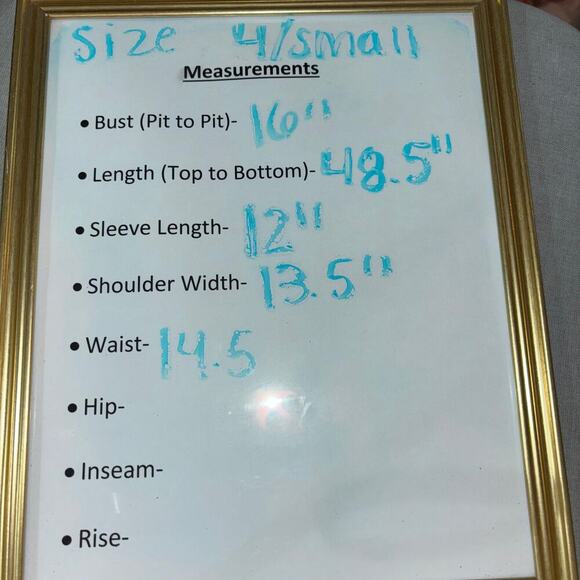 Size 4/small
Measurements
• Bust (Pit to Pit)- 16"
• Length (Top to Bottom)- 48.5"
• Sleeve Length- 12"
• Shoulder Width- 13.5"
• Waist- 14.5
• Hip-
• Inseam-
• Rise-